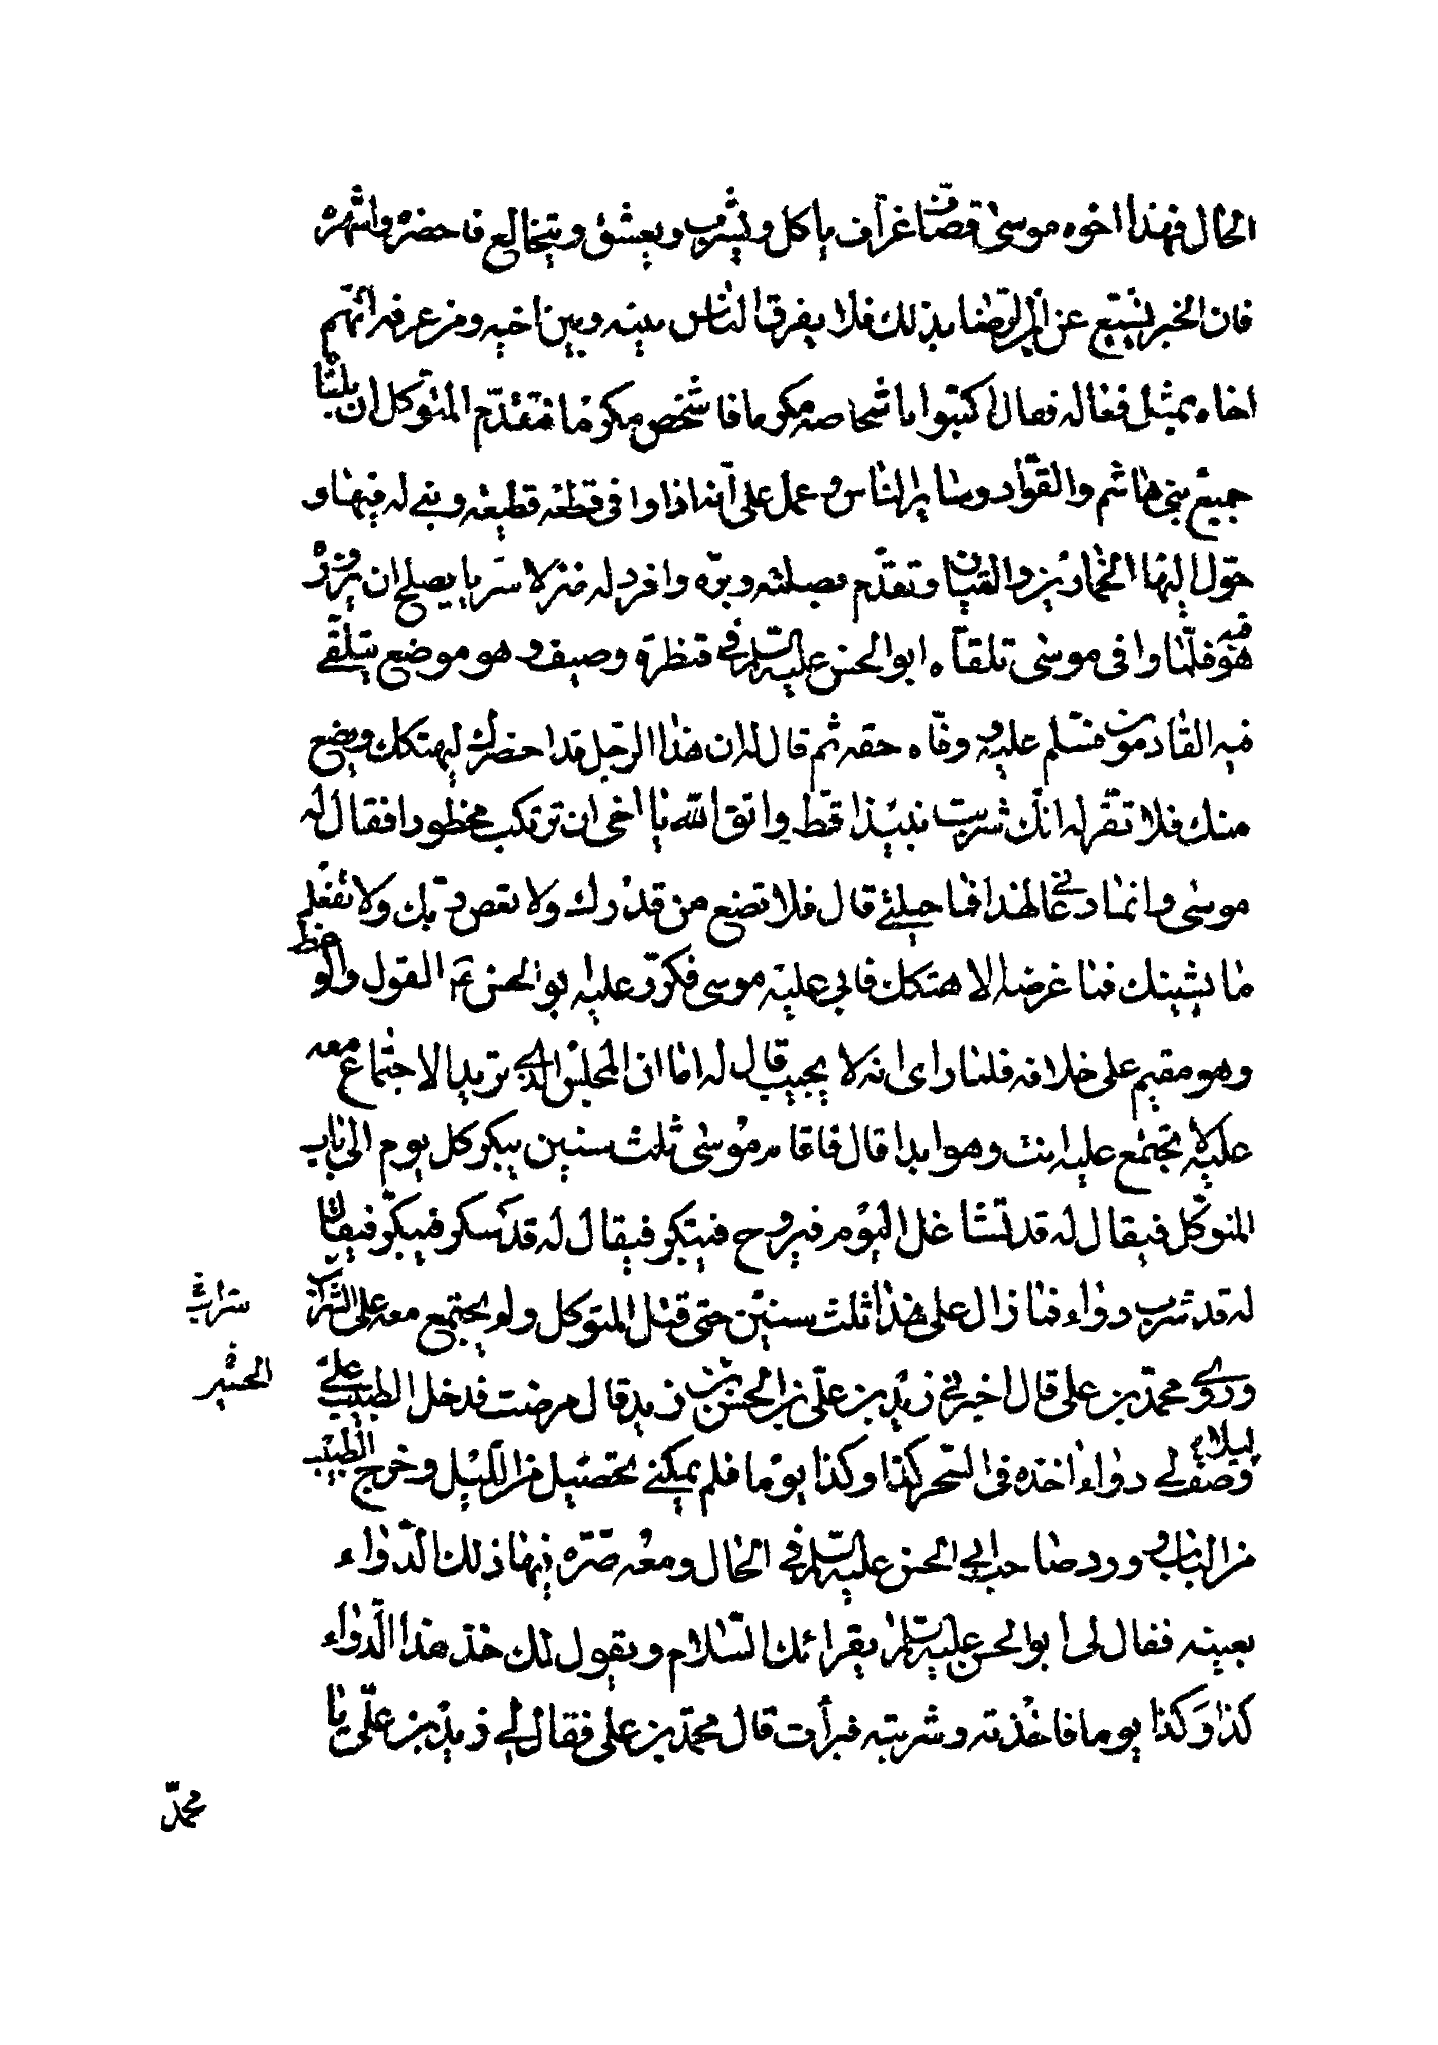 الحال فهذا اخوه موسى قصاف عزاف ياكل ويشرب ويعشق ويتخالع فاحضره واشهره
فان الخبر يشيع عن ابن الرضا بذلك فلا يفرق الناس بينه وبين اخيه ومن عرفه اتهم
اخاه بمثل فعاله فقال اكتبوا باشخاصه مكرما فاشخص مكرما فتقدم المتوكل ان يلقاه
جميع بني هاشم والقواد وساير الناس وعمل على انه اذا وافى قطعه قطيعه وبنى له فيها و
حول اليها الخمارين والقيان وتقدم بصلته وبره وافرد له منزلا سريا يصلح ان يزوره
هو فيه فلما وافى موسى تلقاه ابوالحسن عليه السلم في قنطرة وصيف وهو موضع يتلقى
فيه القادمون فسلم عليه ووفاه حقه ثم قال له ان هذا الرجل قد احضرك ليهتكك ويضع
منك فلا تقر له انك شربت نبيذا قط واتق الله يا اخى ان ترتكب محظورا فقال له
موسى وانما دعاني لهذا فما حيلتي قال فلا تضع من قدرك ولا تعص ربك ولا تفعل
ما يشينك فما غرضه الا هتكك فابى عليه موسى فكرر عليه ابوالحسن ع القول والوعظ
وهو مقيم على خلافه فلما راى انه لا يجيب قال له اما ان المجلس الذي تريد الاجتماع معه
عليه لا تجتمع عليه انت وهو ابدا قال فاقام موسى ثلث سنين يبكر كل يوم الى باب
المتوكل فيقال له قد تشاغل اليوم فيروح فيبتكر فيقال له قد سكر فيبكر فيقال
له قد شرب دواء فما زال على هذا ثلث سنين حتى قتل المتوكل ولم يجتمع معه على الشراب
شراب
وروى محمد بن على قال اخبرني زيد بن على بن الحسن بن زيد قال مرضت فدخل الطبيب على
الحسين
ليلا ووصف لي دواء اخذه في السحر كذا وكذا يوما فلم يمكنى تحصيله من الليل وخرج الطبيب
من الباب وورد صاحب ابي الحسن عليه السلم في الحال ومعه صرة فيها ذلك الدواء
بعينه فقال لى ابوالحسن عليه السلم يقرائك السلام ويقول لك خذ هذا الدواء
كذا وكذا يوما فاخذته وشربته فبرأت قال محمد بن على فقال لي زيد بن على يا
محمد